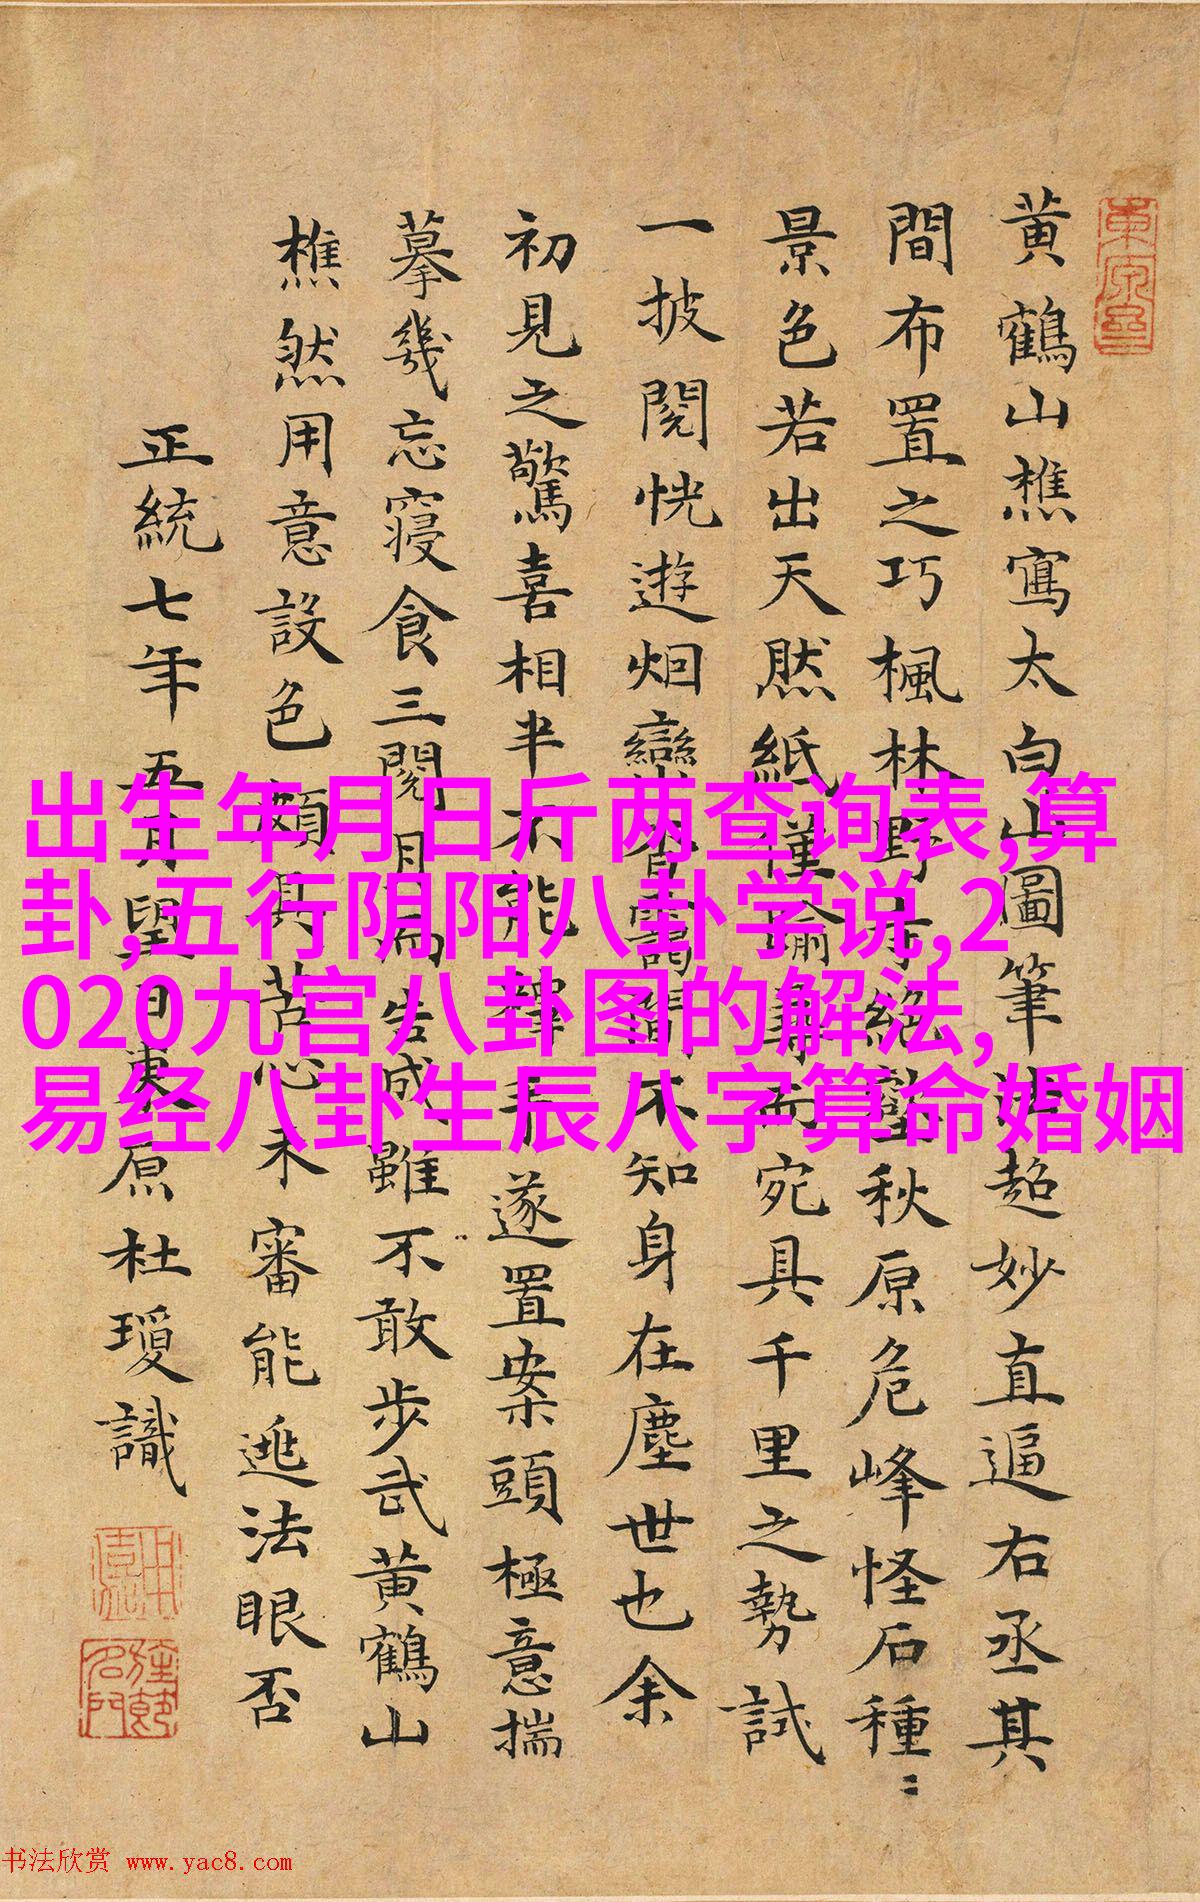 黄鶴山樵寫太白山圖筆法超妙直逼右丞其
間布置之巧楓林野寺絕壑秋原危峰怪石種〻
景色若出天然紙僅踰尋而宛具千里之勢試
一披閱恍遊烟巒杳靄間不知身在塵世也余
初見之驚喜相半不能釋手遂置案頭極意揣
摹幾忘寝食三閱月而告成雖不敢步武黄鶴山
樵然用意設色頗具苦心未審能逃法眼否
正統七年五月望日東原杜瓊識
出生年月日斤两查询表,算
卦,五行阴阳八卦学说,2
020九宫八卦图的解法,
易经八卦生辰八字算命婚姻
书法欣赏 www.yac8.com